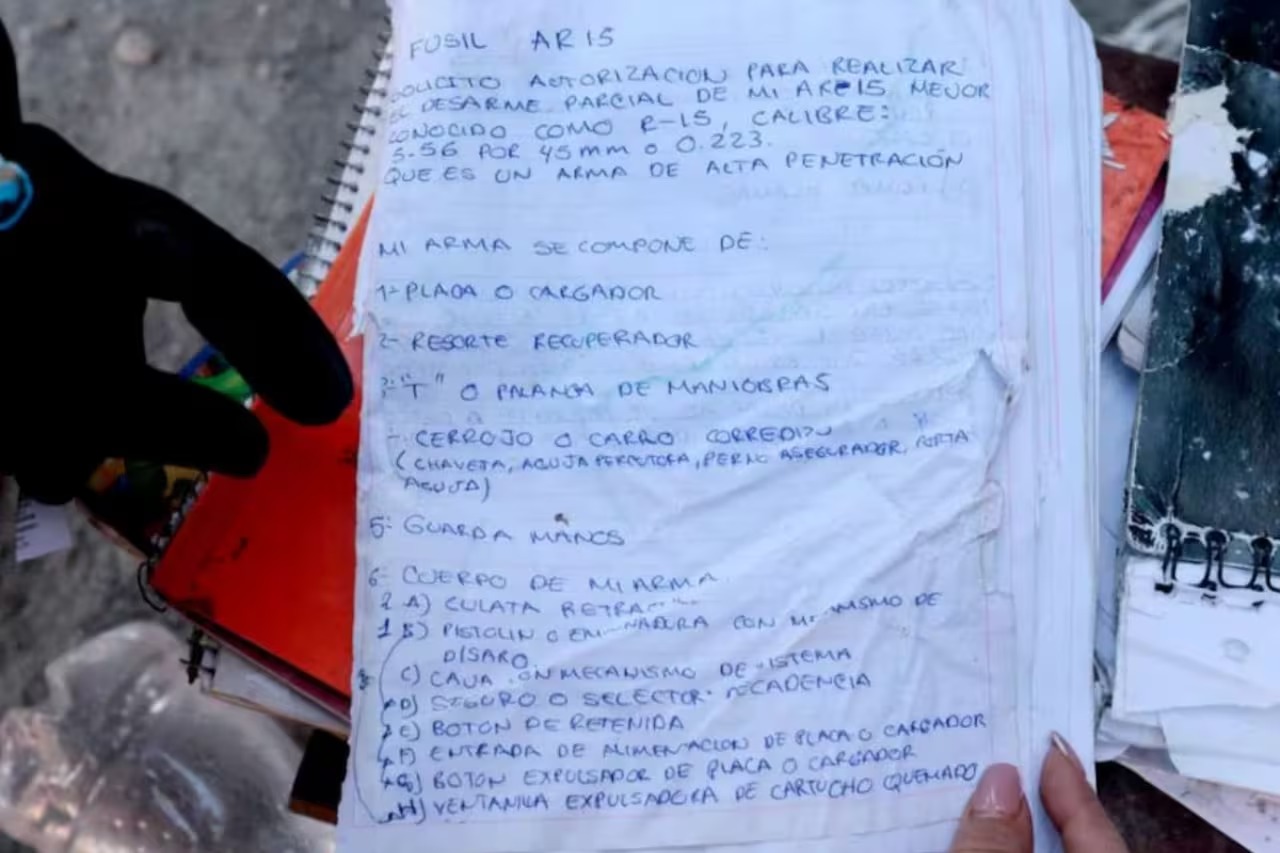 FUSIL AR15
SOLICITO AUTORIZACION PARA REALIZAR
EL DESARME PARCIAL DE MI AR-15 MEJOR
CONOCIDO COMO R-15, CALIBRE:
5.56 POR 45MM O 0.223.
QUE ES UN ARMA DE ALTA PENETRACIÓN
MI ARMA SE COMPONE DE:
1- PLACA O CARGADOR
2- RESORTE RECUPERADOR
"T" O PALANCA DE MANIOBRAS
CERROJO O CARRO CORREDIZO
(CHAVETA, AGUJA PERCUTORA, PERNO ASEGURADOR, PORTA
AGUJA)
5- GUARDA MANOS
6- CUERPO DE MI ARMA.
2 A) CULATA
1 B) PISTOLIN O CON DE
DISARO
C) CAJA MECANISMO DE
D) SEGURO O SELECTOR CADENCIA
E) BOTON DE RETENIDA
F) ENTRADA DE ALIMENTACION DE PLACA O CARGADOR
G) BOTON EXPULSADOR DE PLACA O CARGADOR
H) VENTANILLA EXPULSADORA DE CARTUCHO QUEMADO